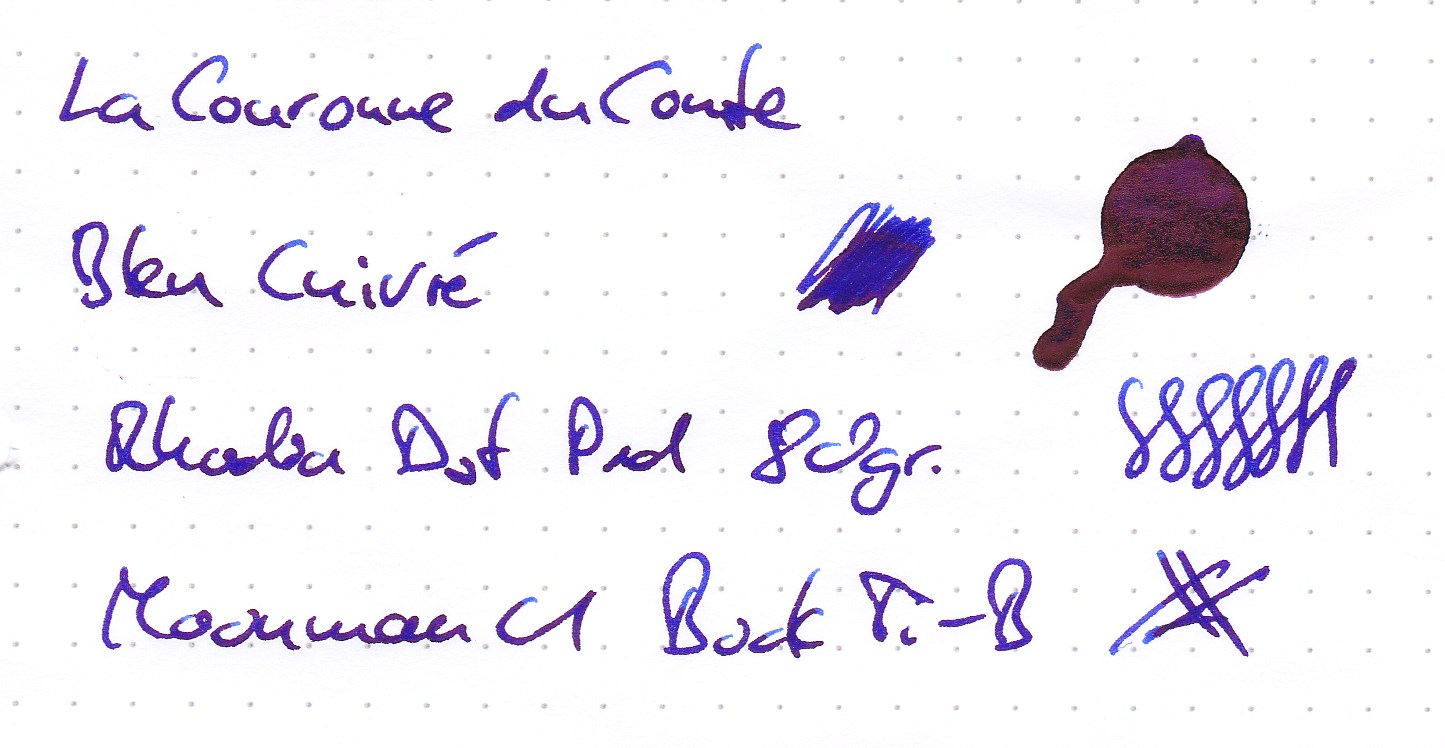 La Couronne du Comte
Bleu Cuivré
Rhodia Dot Pad 80gr.
Moonman C1 Bock Ti-B